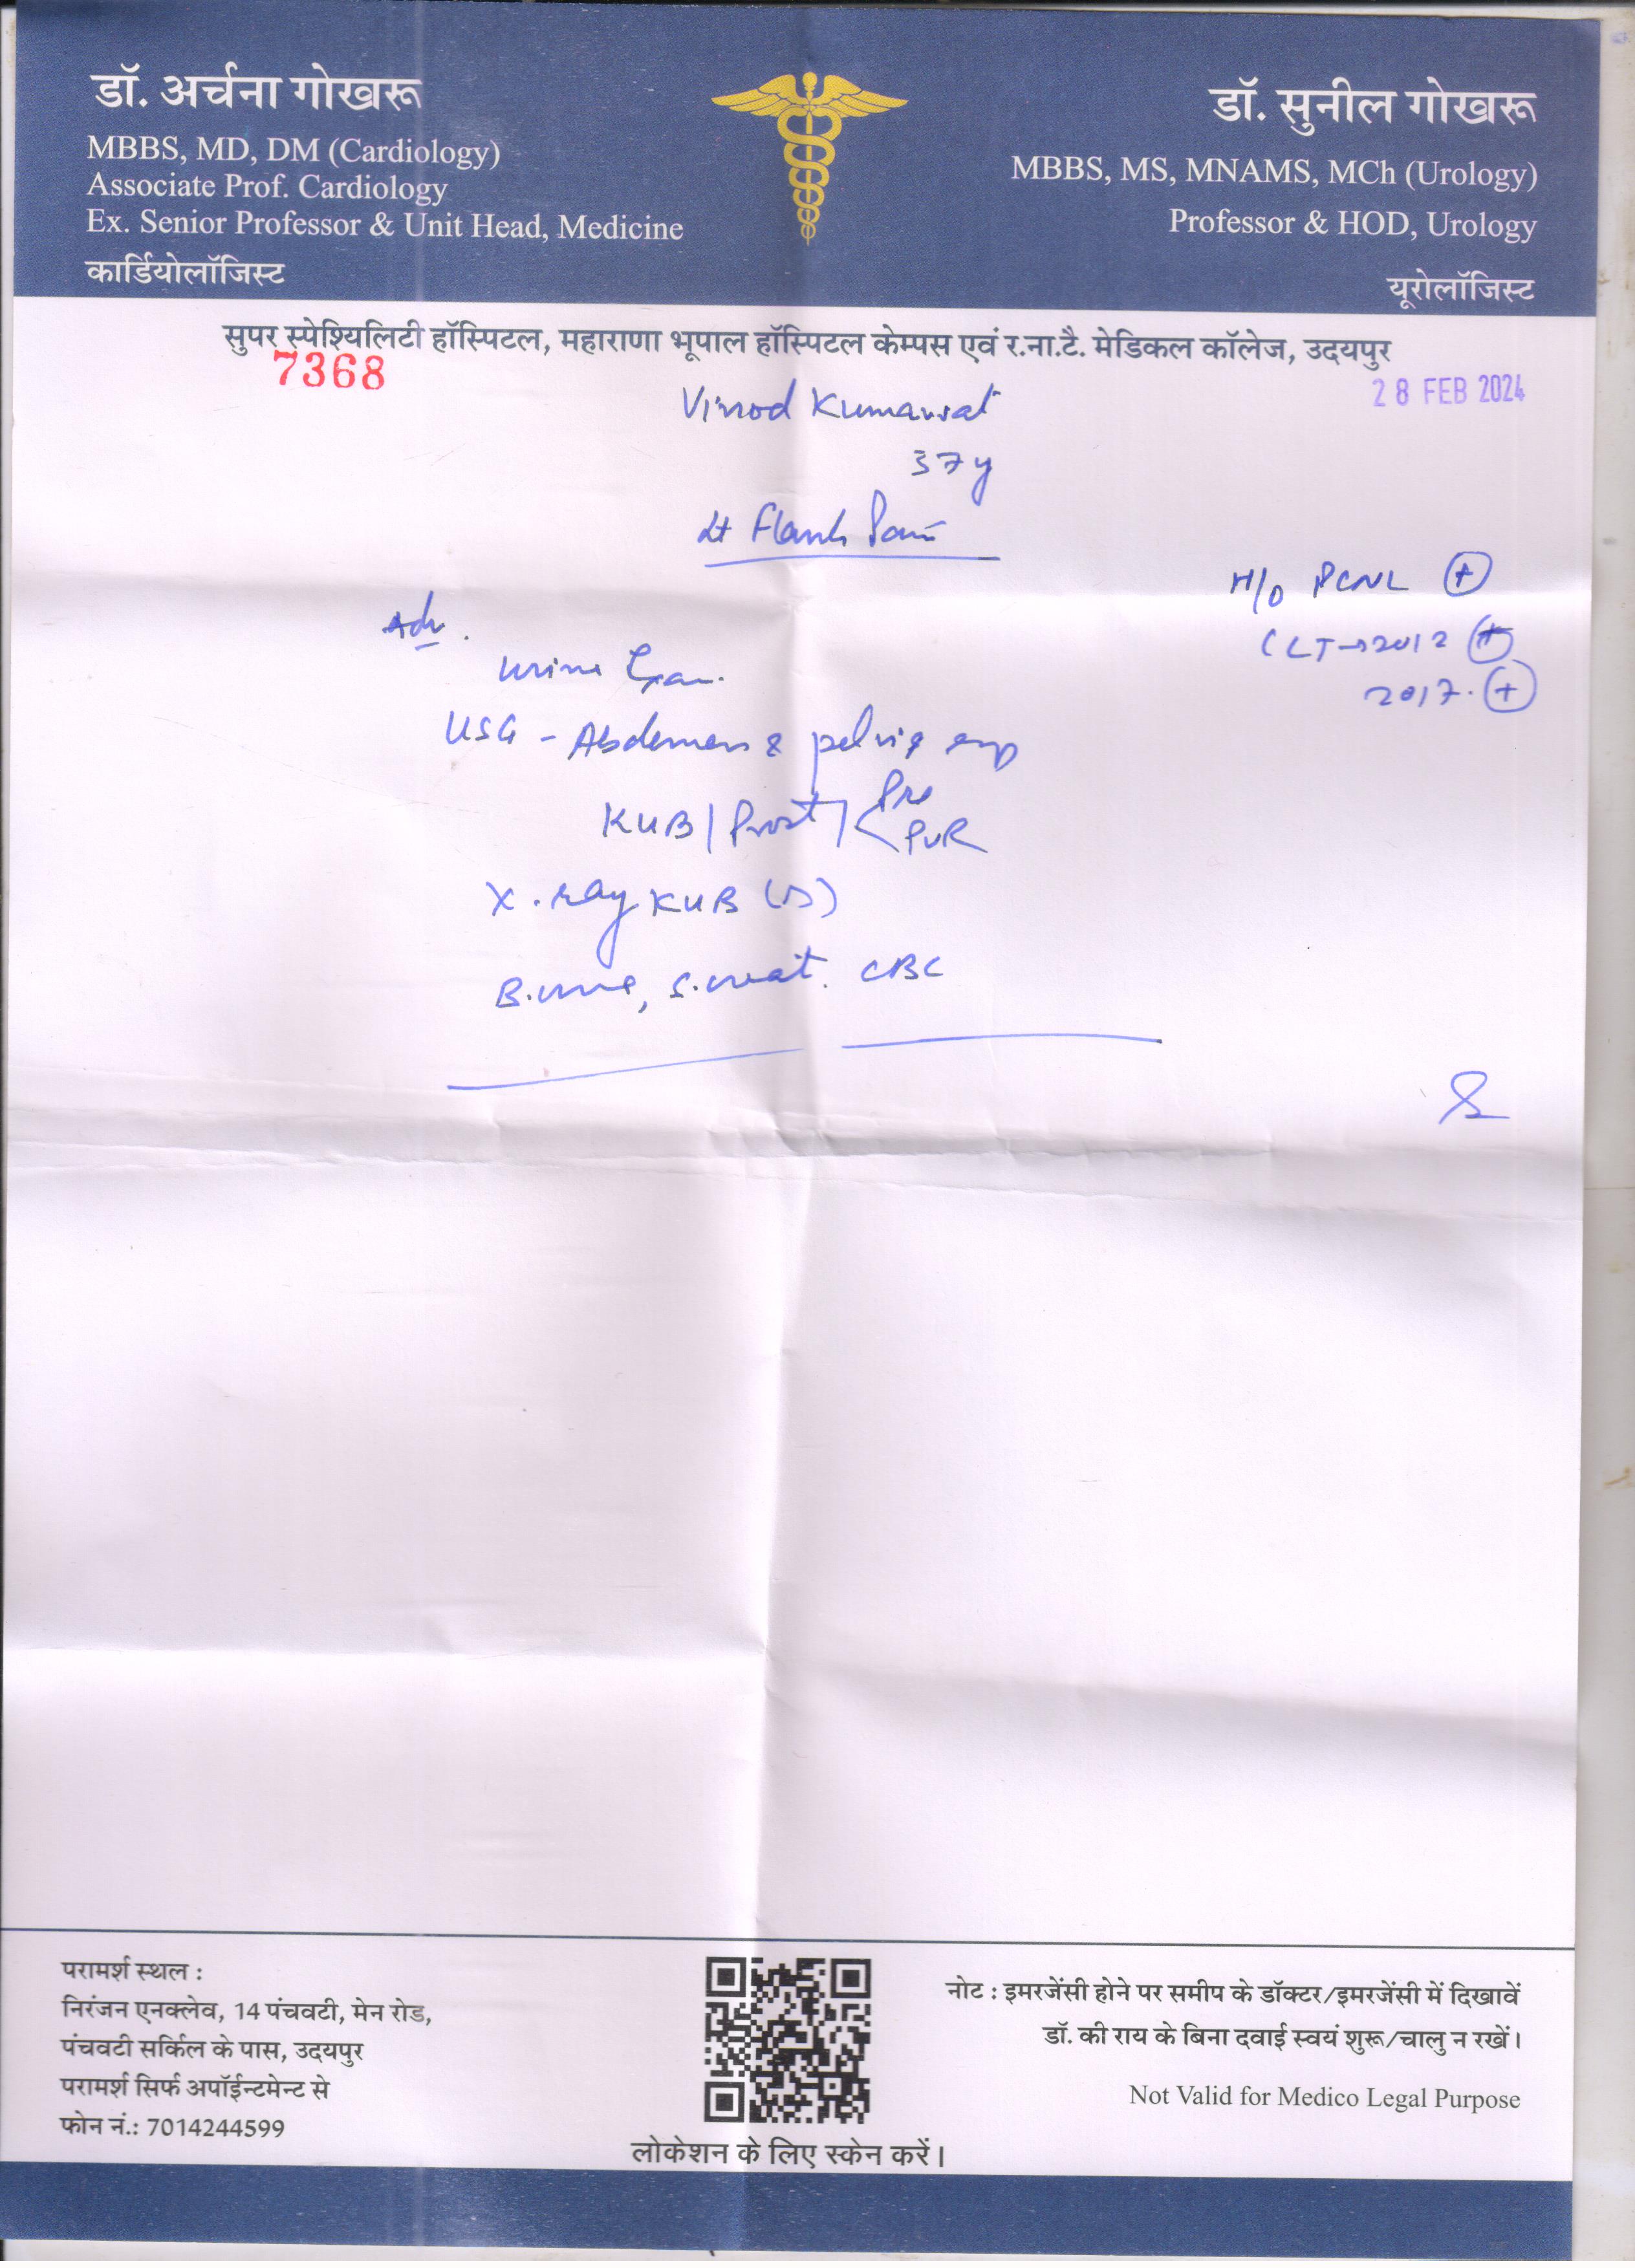 डॉ. अर्चना गोखरू
MBBS, MD, DM (Cardiology)
Associate Prof. Cardiology
Ex. Senior Professor & Unit Head, Medicine
कार्डियोलॉजिस्ट
डॉ. सुनील गोखरू
MBBS, MS, MNAMS, MCh (Urology)
Professor & HOD, Urology
यूरोलॉजिस्ट
सुपर स्पेश्यिलिटी हॉस्पिटल, महाराणा भूपाल हॉस्पिटल केम्पस एवं र.ना.टै. मेडिकल कॉलेज, उदयपुर
7368
28 FEB 2024
Vinod Kumawat
37y
Lt Flank Pain
H/O PCNL (+)
(LT→2012 (+)
2017. (+)
Adv.
Urine Exam.
USG - Abdomen & pelvis
KUB | Prost | < Pre
PVR
X-ray KUB (S)
B.urea, S.creat. CBC
परामर्श स्थल :
निरंजन एनक्लेव, 14 पंचवटी, मेन रोड,
पंचवटी सर्किल के पास, उदयपुर
परामर्श सिर्फ अपॉईन्टमेन्ट से
फोन नं.: 7014244599
लोकेशन के लिए स्केन करें।
नोट : इमरजेंसी होने पर समीप के डॉक्टर/इमरजेंसी में दिखावें
डॉ. की राय के बिना दवाई स्वयं शुरू/चालु न रखें।
Not Valid for Medico Legal Purpose